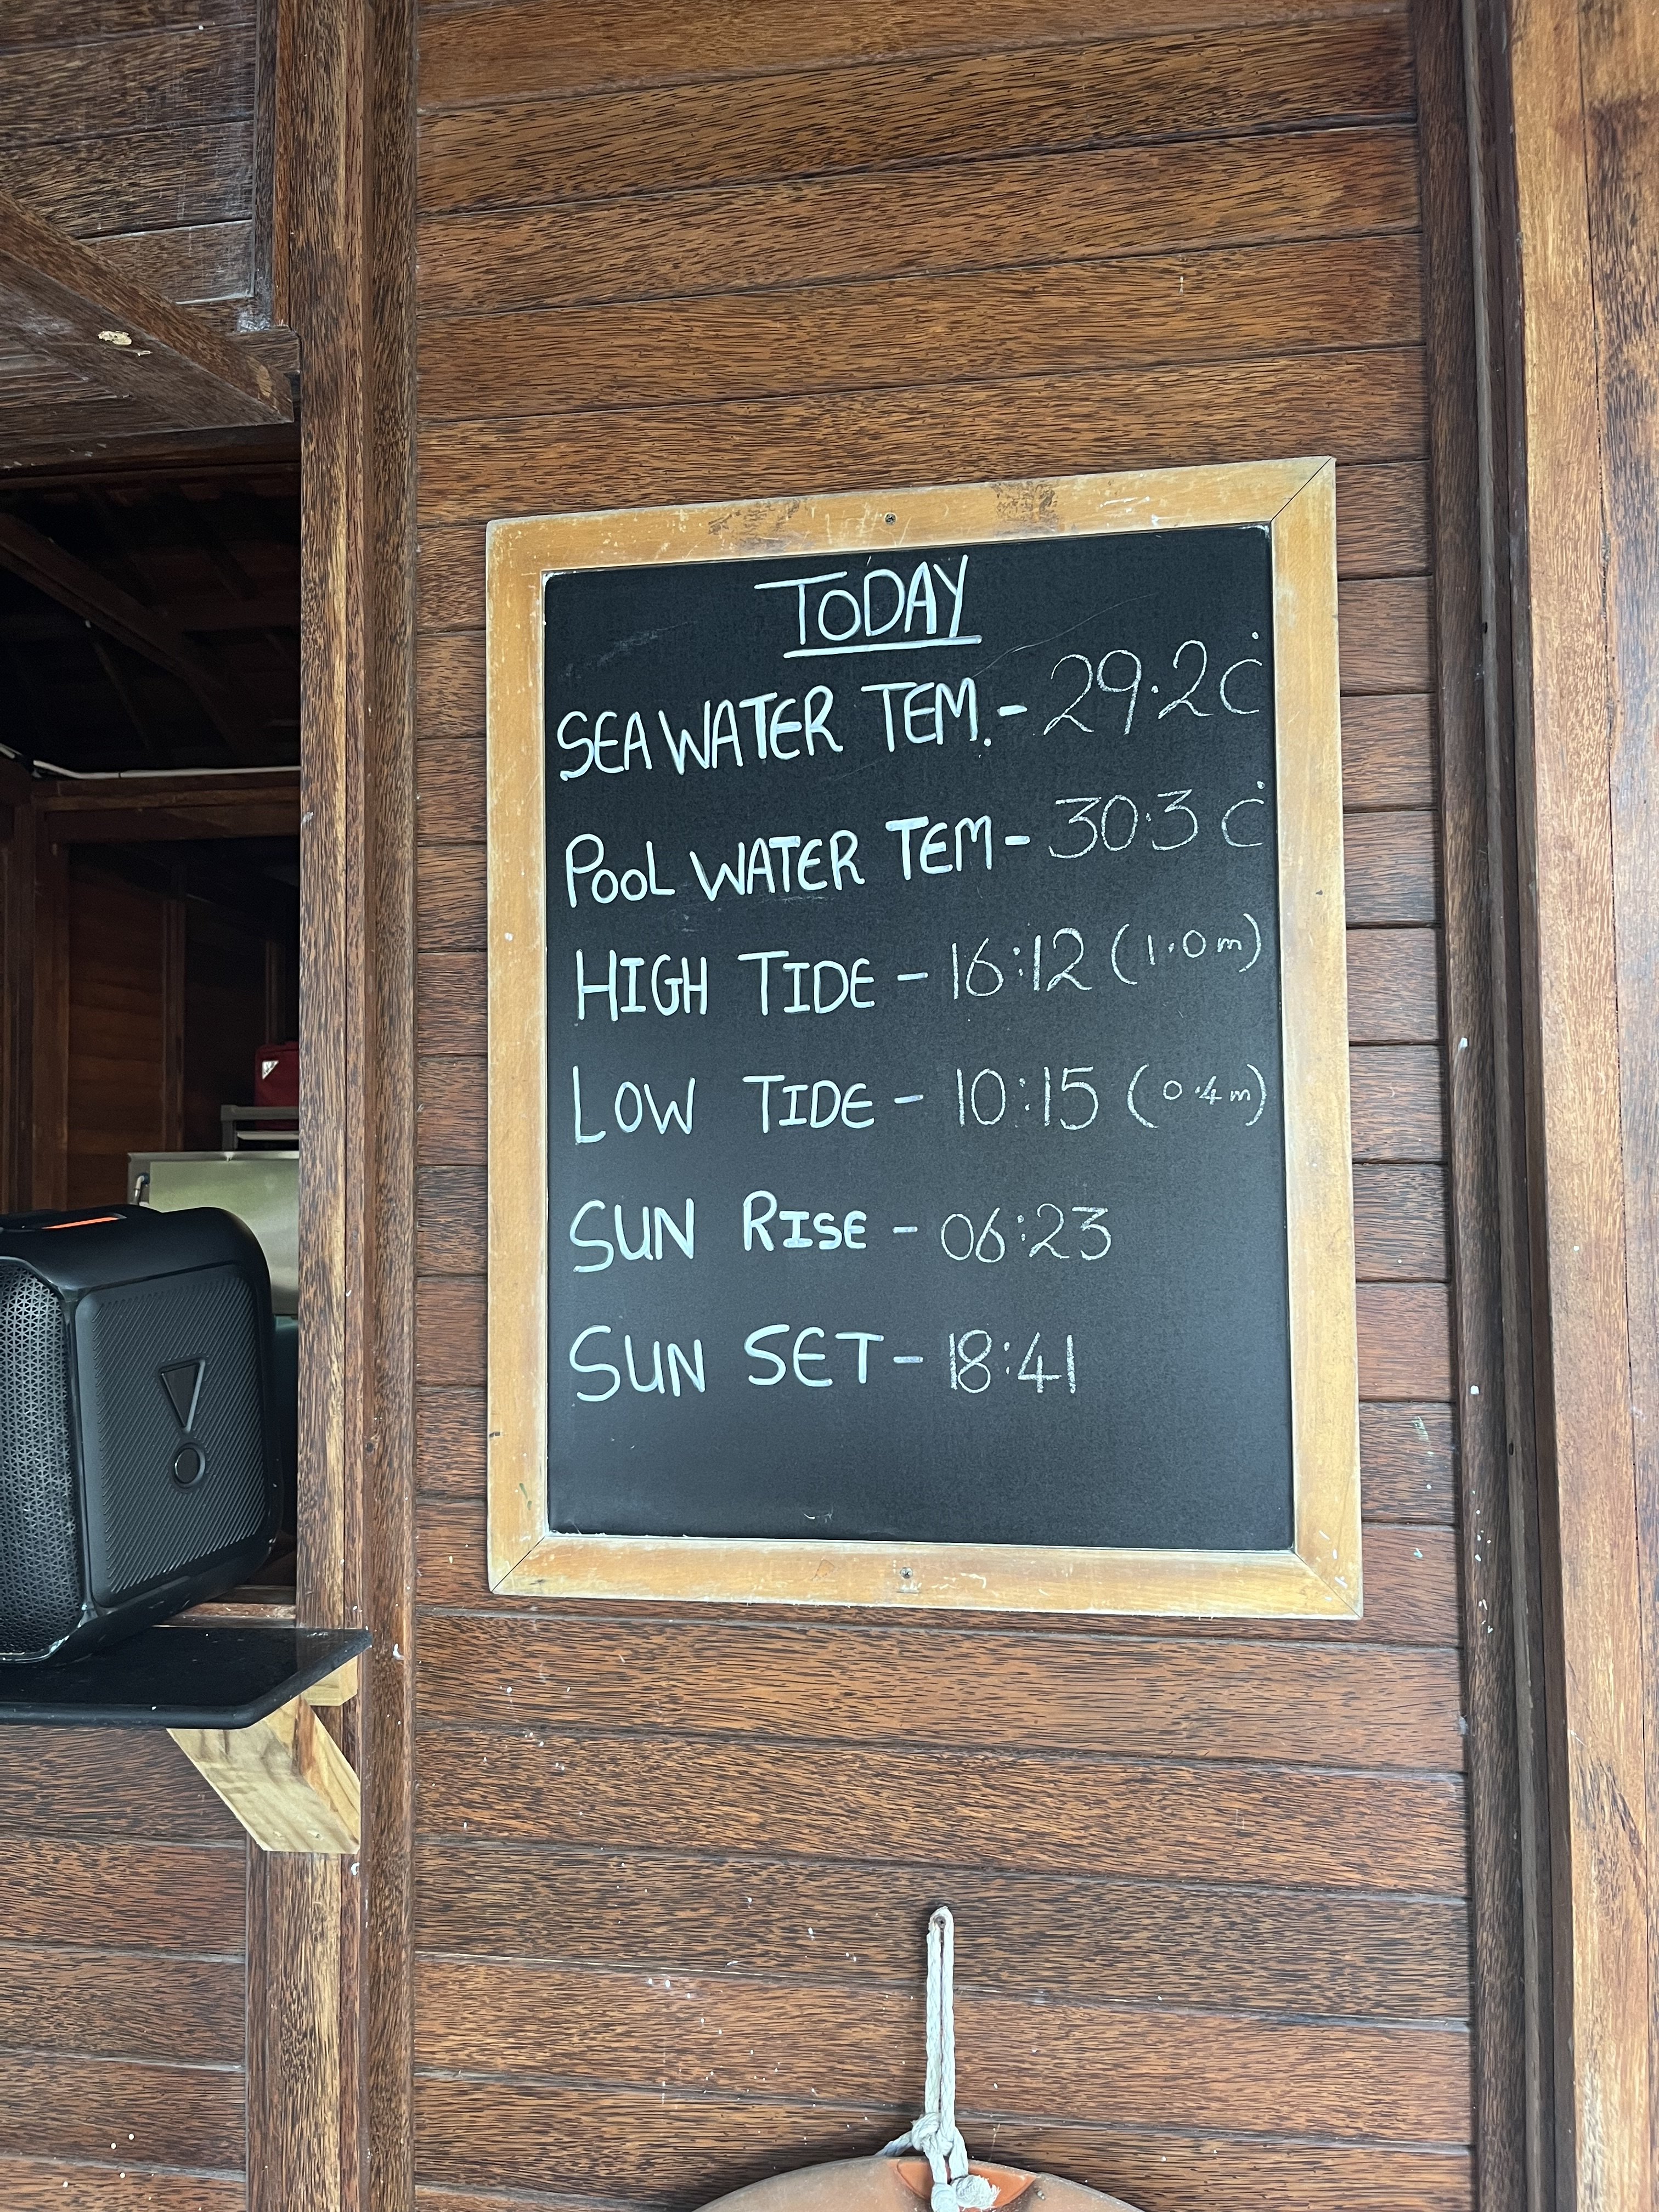 TODAY
SEA WATER TEM. - 29.2C°
POOL WATER TEM - 30.3 C°
HIGH TIDE - 16:12 (1.0m)
LOW TIDE - 10:15 (0.4m)
SUN RISE - 06:23
SUN SET - 18:41